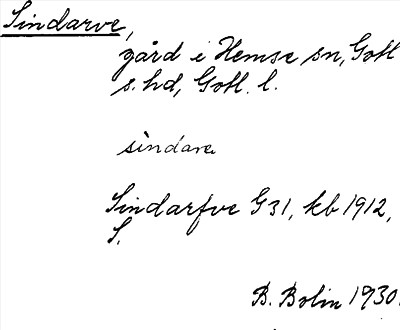 Sindarve,
gård i Hemse sn, Gotl
s. hd, Gotl. l.
sindarɛ
Sindarfve G 31, kb 1912,
S.
B. Bolin 1930.